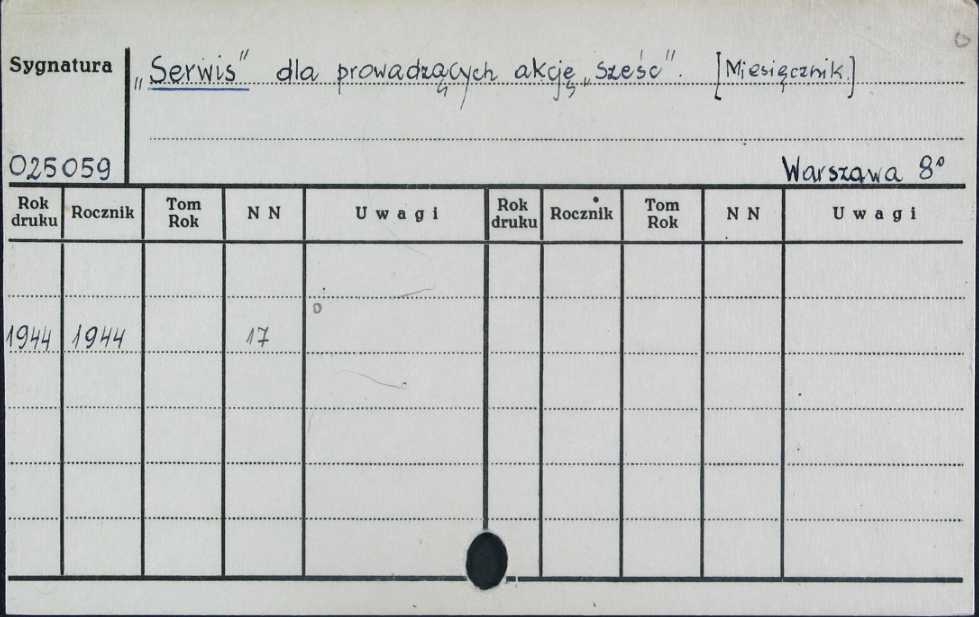 Sygnatura „Serwis” dla prowadzących akcję „Sześć”. [Miesięcznik.]
025059 Warszawa 8°
Rok druku Rocznik Tom Rok N N Uwagi Rok druku Rocznik Tom Rok N N Uwagi
1944 1944 17